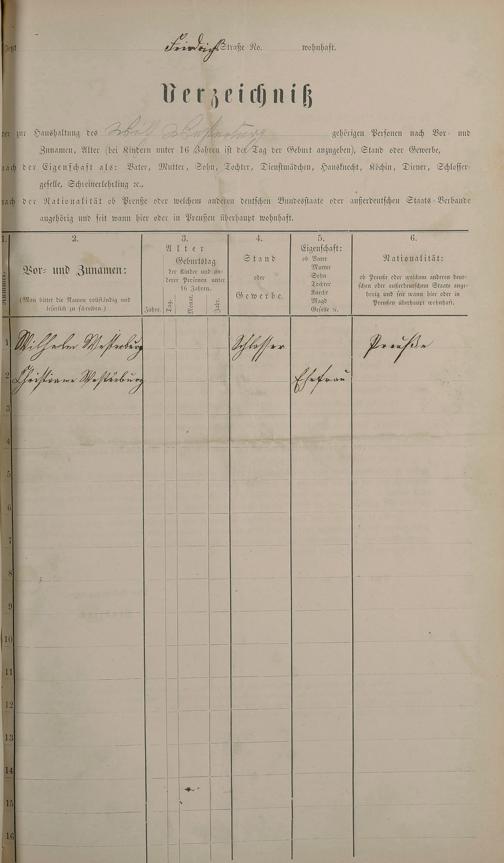 Friedrich Straße No. wohnhaft.
Verzeichniß
der zur Haushaltung des Wilh. Westerburg gehörigen Personen nach Vor- und
Zunamen, Alter (bei Kindern unter 16 Jahren ist der Tag der Geburt anzugeben), Stand oder Gewerbe,
nach der Eigenschaft als: Vater, Mutter, Sohn, Tochter, Dienstmädchen, Hausknecht, Köchin, Diener, Schlosser-
geselle, Schreinerlehrling ꝛc.,
nach der Nationalität ob Preuße oder welchem anderen deutschen Bundesstaate oder außerdeutschen Staats-Verbande
angehörig und seit wann hier oder in Preußen überhaupt wohnhaft.
1.
2.
Vor- und Zunamen:
(Man bittet die Namen vollständig und
leserlich zu schreiben.)
3.
Alter
Geburtstag
der Kinder und an-
derer Personen unter
16 Jahren.
Jahre.
Tag.
Monat.
Jahr.
4.
Stand
oder
Gewerbe.
5.
Eigenschaft:
ob Vater
Mutter
Sohn
Tochter
Knecht
Magd
Geselle ꝛc.
6.
Nationalität:
ob Preuße oder welchem anderen deut-
schen oder außerdeutschen Staate ange-
hörig und seit wann hier oder in
Preußen überhaupt wohnhaft.
1 Wilhelm Westerburg Schlosser Preuße
2 Christiane Westerburg Ehefrau
3
4
5
6
7
8
9
10
11
12
13
14
15
16